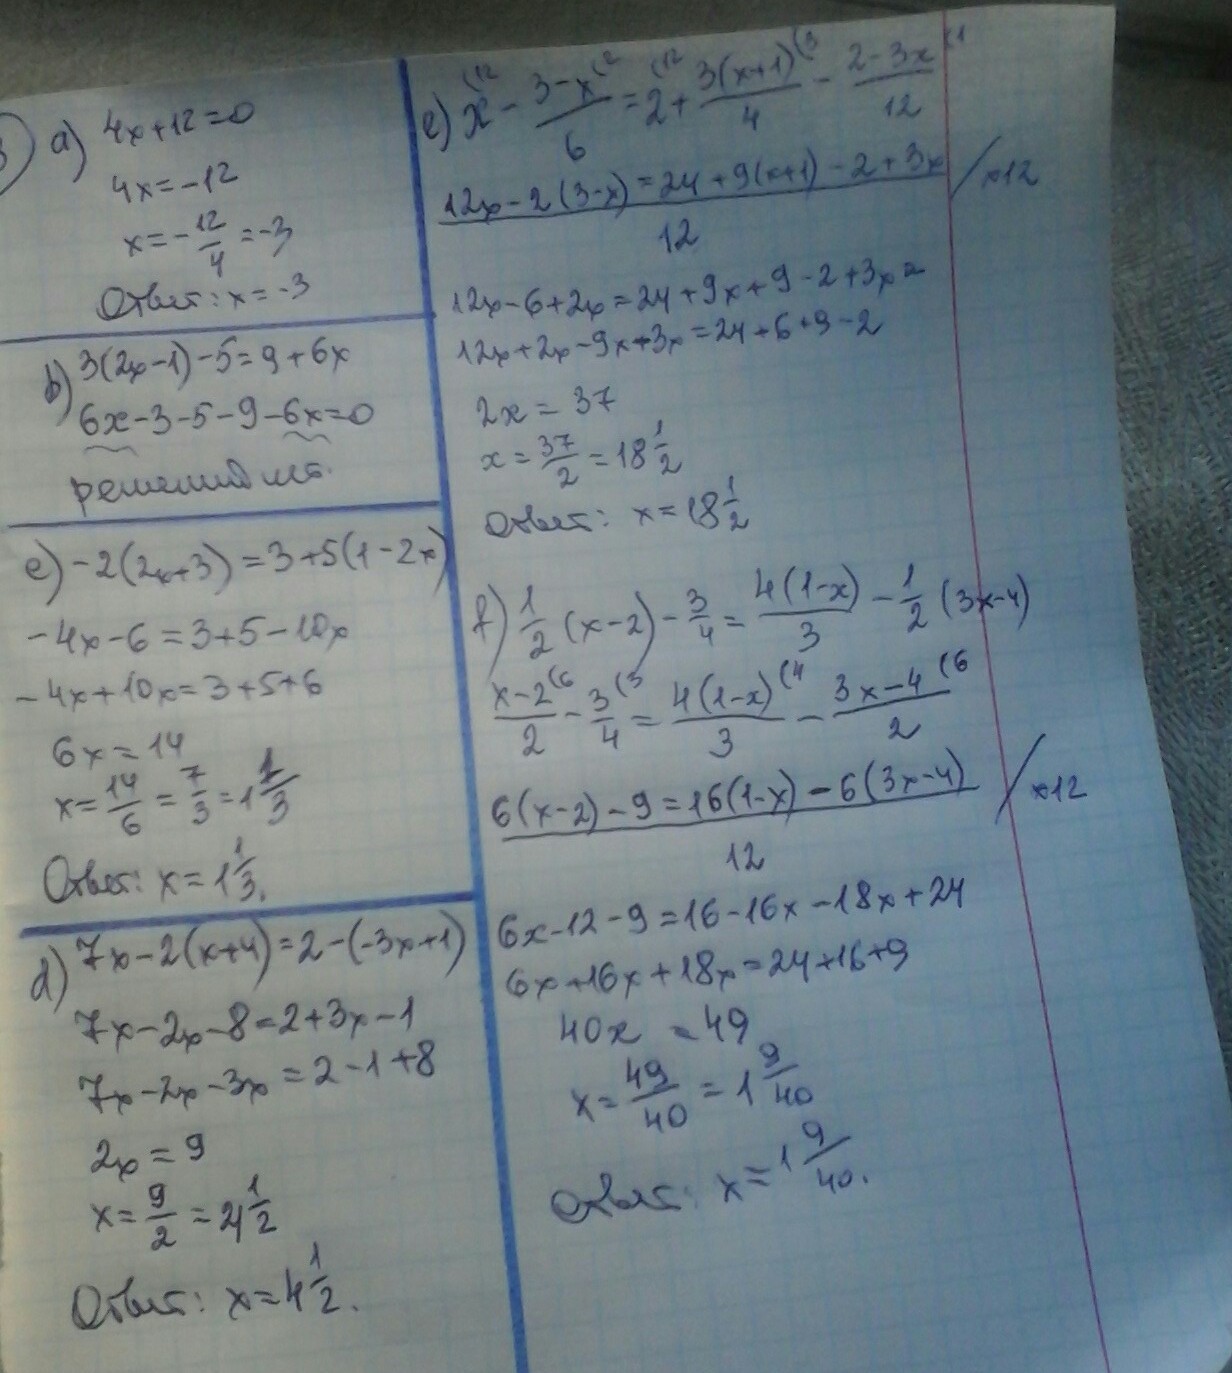 a) 4x+12=0
4x=-12
x=-12/4=-3
Ответ: x=-3
b) 3(2x-1)-5=9+6x
6x-3-5-9-6x=0
решений нет.
c) -2(2x+3)=3+5(1-2x)
-4x-6=3+5-10x
-4x+10x=3+5+6
6x=14
x=14/6=7/3=1 1/3
Ответ: x=1 1/3.
d) 7x-2(x+4)=2-(-3x+1)
7x-2x-8=2+3x-1
7x-2x-3x=2-1+8
2x=9
x=9/2=4 1/2
Ответ: x=4 1/2.
e) x(12 - 3-x(2/6=2(12+3(x+1)(3/4-2-3x(1/12
12x-2(3-x)=24+9(x+1)-2+3x/12 /x12
12x-6+2x=24+9x+9-2+3x=
12x+2x-9x+3x=24+6+9-2
2x=37
x=37/2=18 1/2
Ответ: x=18 1/2
f) 1/2(x-2)-3/4=4(1-x)/3-1/2(3x-4)
x-2(6/2-3(3/4=4(1-x)(4/3-3x-4(6/2
6(x-2)-9=16(1-x)-6(3x-4)/12 /x12
6x-12-9=16-16x-18x+24
6x+16x+18x=24+16+9
40x=49
x=49/40=1 9/40
Ответ: x=1 9/40.